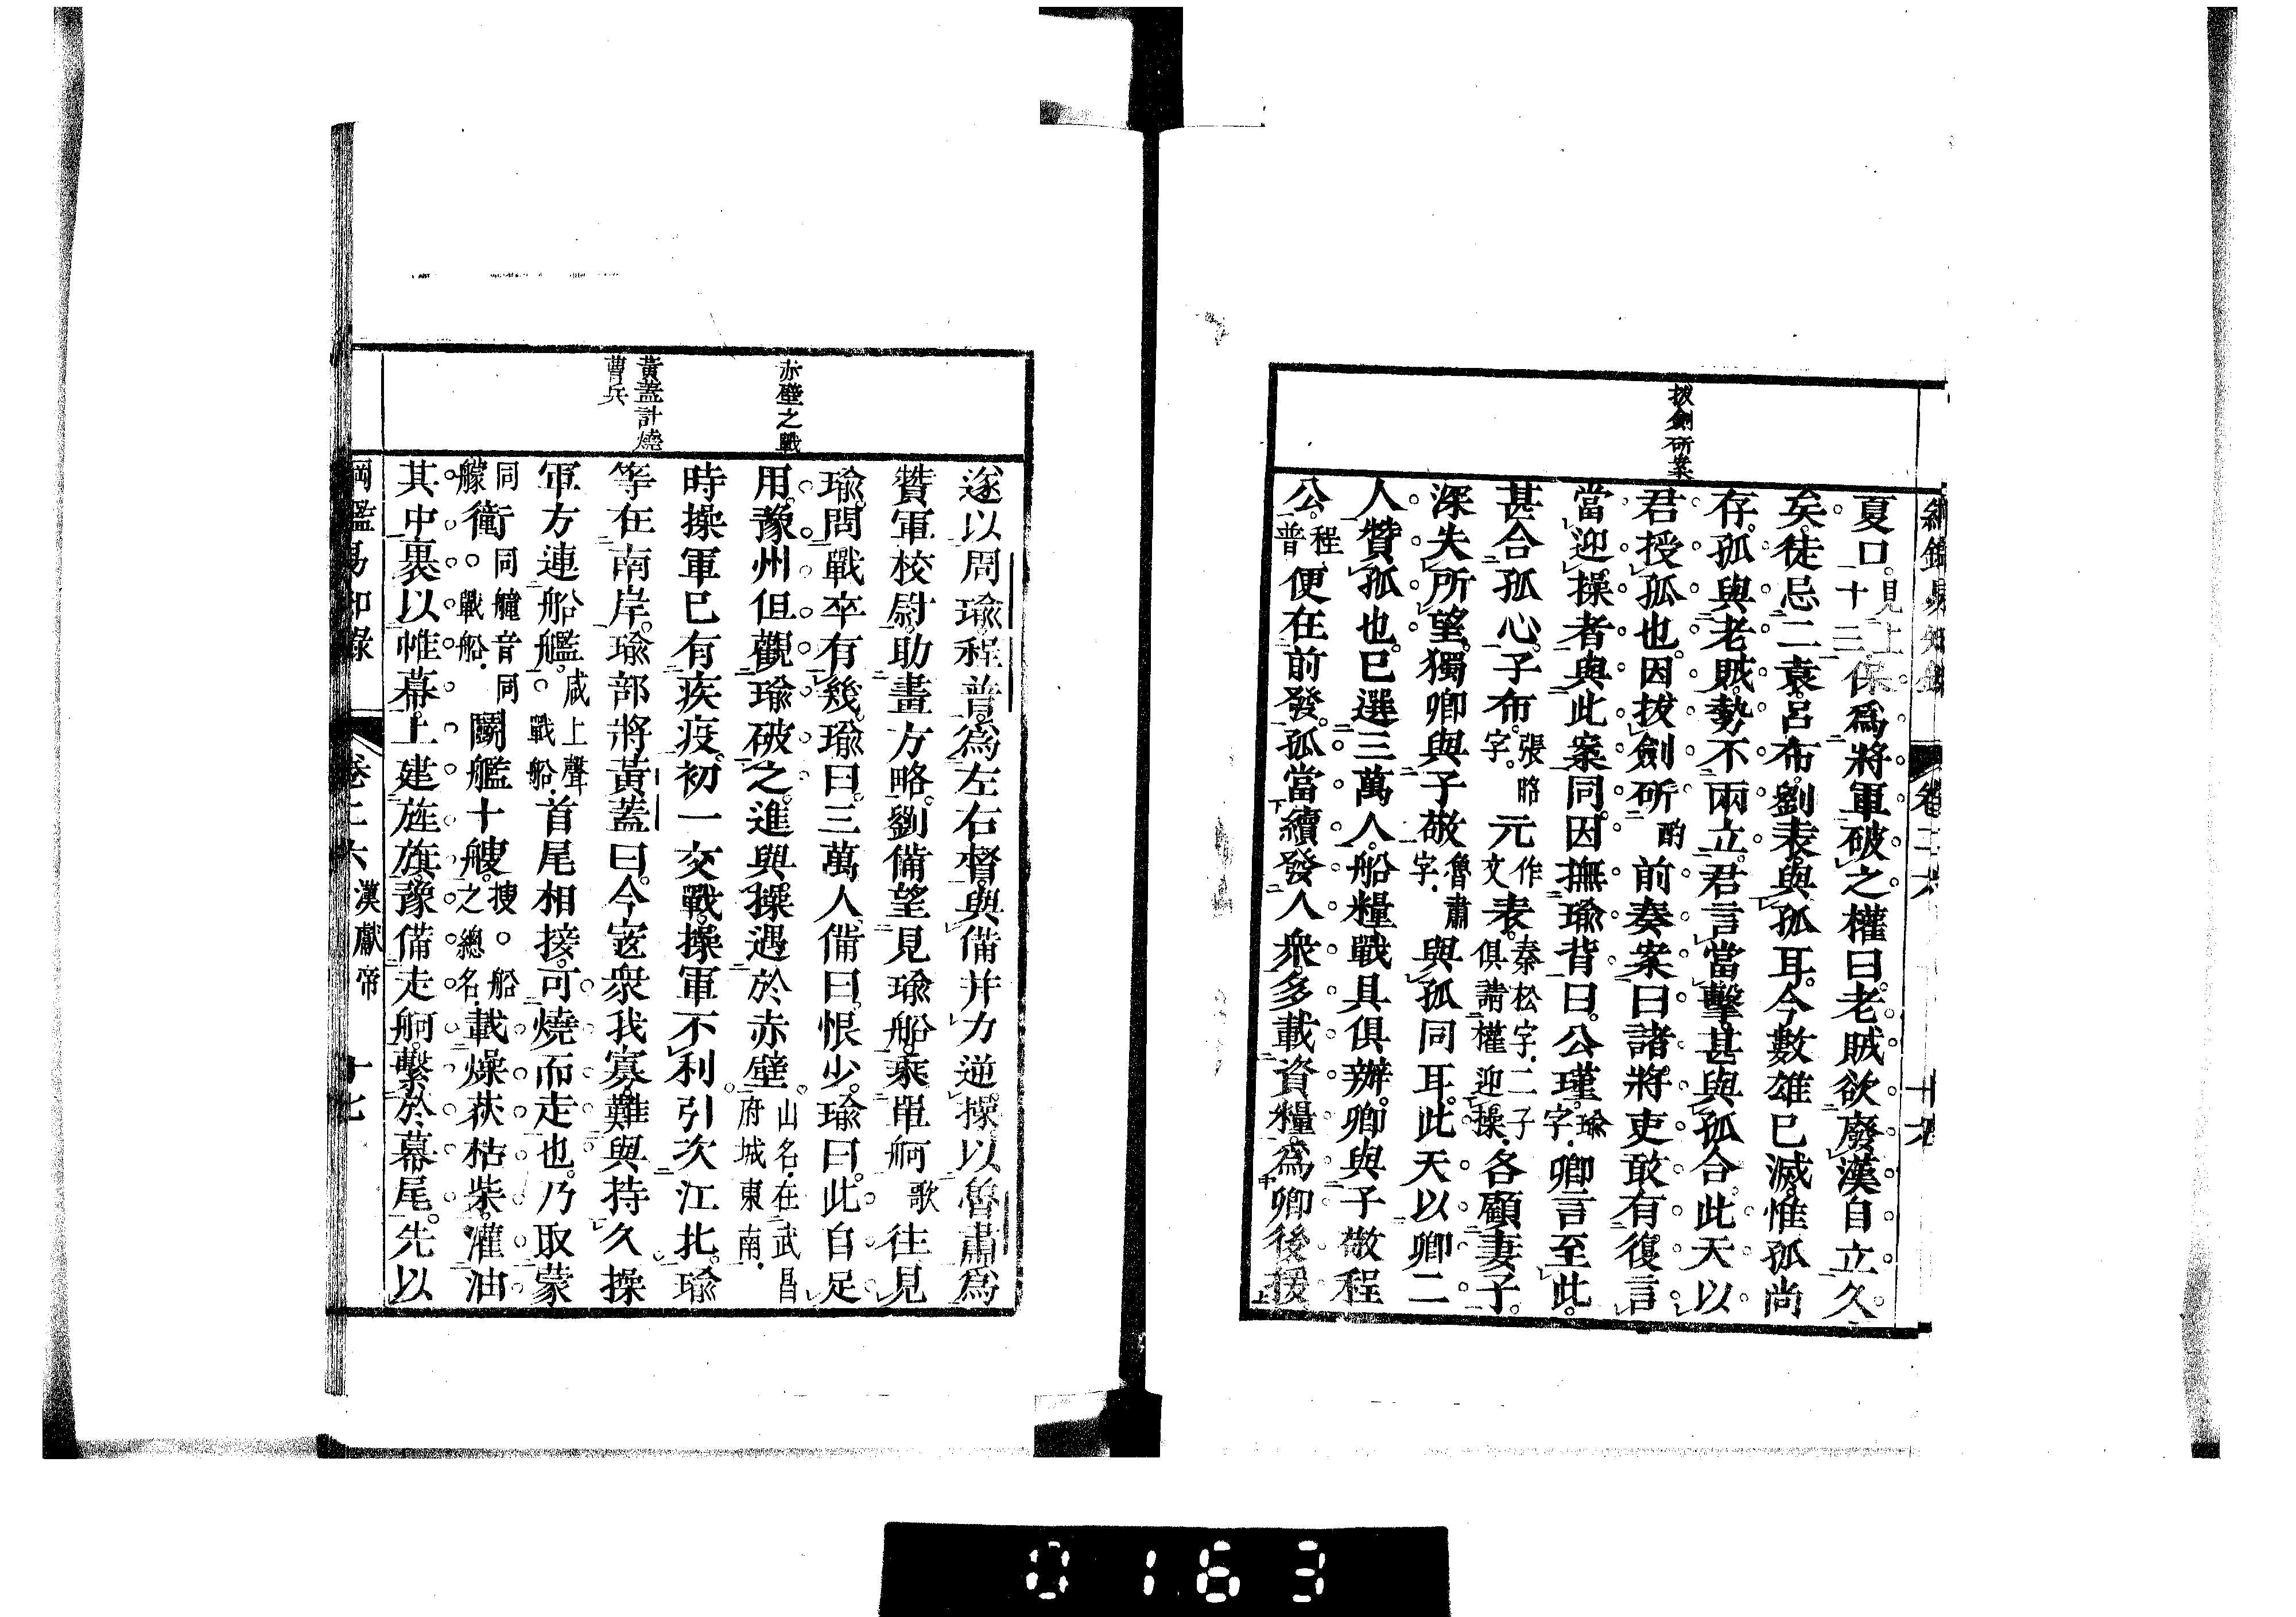 綱鑑易知錄 卷二六 十六
拔劍斫案
夏口見上十三保爲將軍破之權曰老賊欲廢漢自立久
矣徒忌二袁呂布劉表與孤耳今數雄已滅惟孤尚
存孤與老賊勢不兩立君言當擊甚與孤合此天以
君授孤也因拔劍斫酌前奏案曰諸將吏敢有復言
當迎操者與此案同因撫瑜背曰公瑾瑜字卿言至此
甚合孤心子布張昭字元作文表秦松字二子俱請權迎操各顧妻子
深失所望獨卿與子敬魯肅字與孤同耳此天以卿二
人贊孤也已選三萬人船糧戰具俱辦卿與子敬程
公程普便在前發孤當續發人衆多載資糧爲卿後援
赤壁之戰
黃蓋計燒
曹兵
遂以周瑜程普爲左右督與備并力逆操以魯肅爲
贊軍校尉助畫方略劉備望見瑜船乘單舸歌往見
瑜問戰卒有幾瑜曰三萬人備曰恨少瑜曰此自足
用豫州但觀瑜破之進與操遇於赤壁山名在武昌府城東南
時操軍已有疾疫初一交戰操軍不利引次江北瑜
等在南岸瑜部將黃蓋曰今寇衆我寡難與持久操
軍方連船艦咸上聲戰船首尾相接可燒而走也乃取蒙
同艨衝同艟音同戰船鬬艦十艘搜船之總名載燥荻枯柴灌油
其中裹以帷幕上建旌旗豫備走舸繫於幕尾先以
綱鑑易知錄 卷二六 漢獻帝 十七
0163